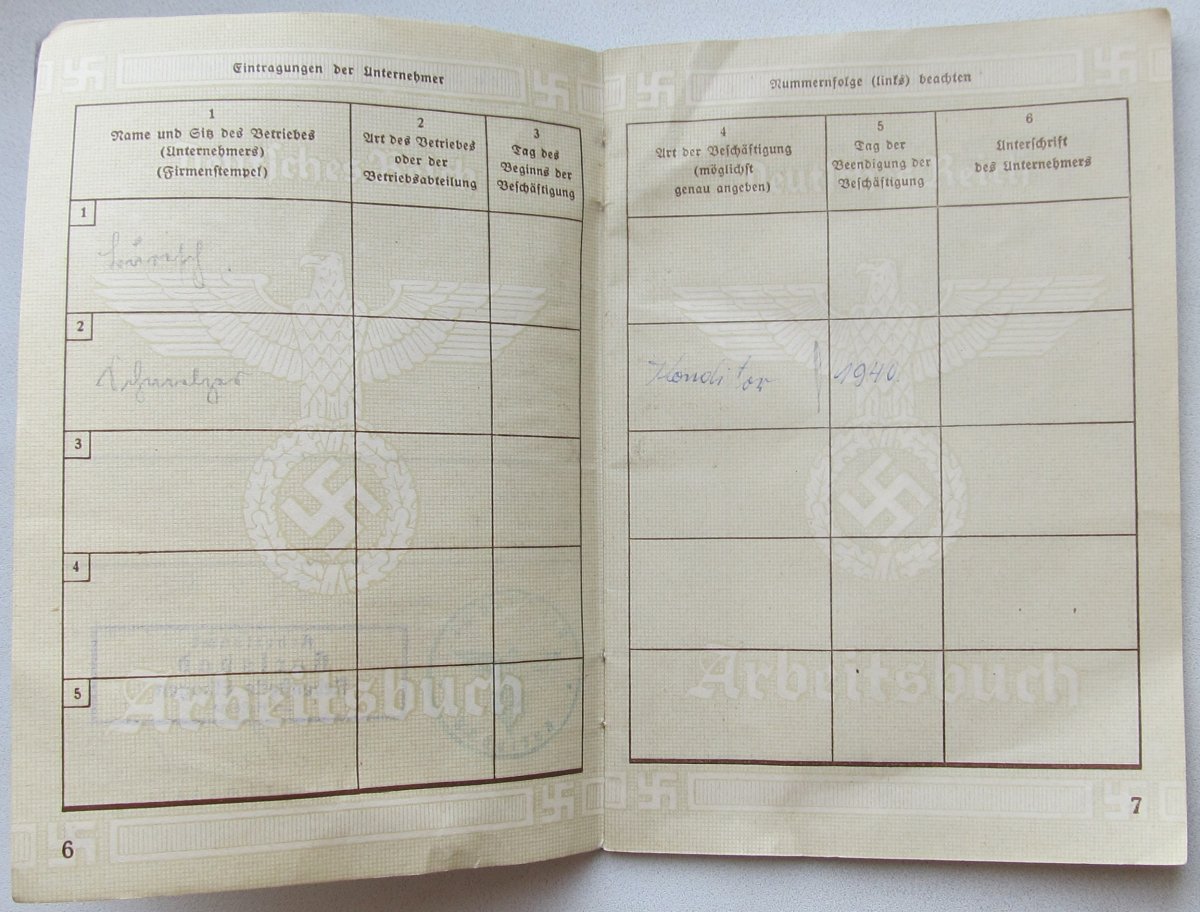 Eintragungen der Unternehmer
1
Name und Sitz des Betriebes
(Unternehmers)
(Firmenstempel)
2
Art des Betriebes
oder der
Betriebsabteilung
3
Tag des
Beginns der
Beschäftigung
1
2
3
4
5
Arbeitsbuch
6
Nummernfolge (links) beachten
4
Art der Beschäftigung
(möglichst
genau angeben)
5
Tag der
Beendigung der
Beschäftigung
6
Unterschrift
des Unternehmers
Deutsches Reich
Konditor
1940.
Arbeitsbuch
7